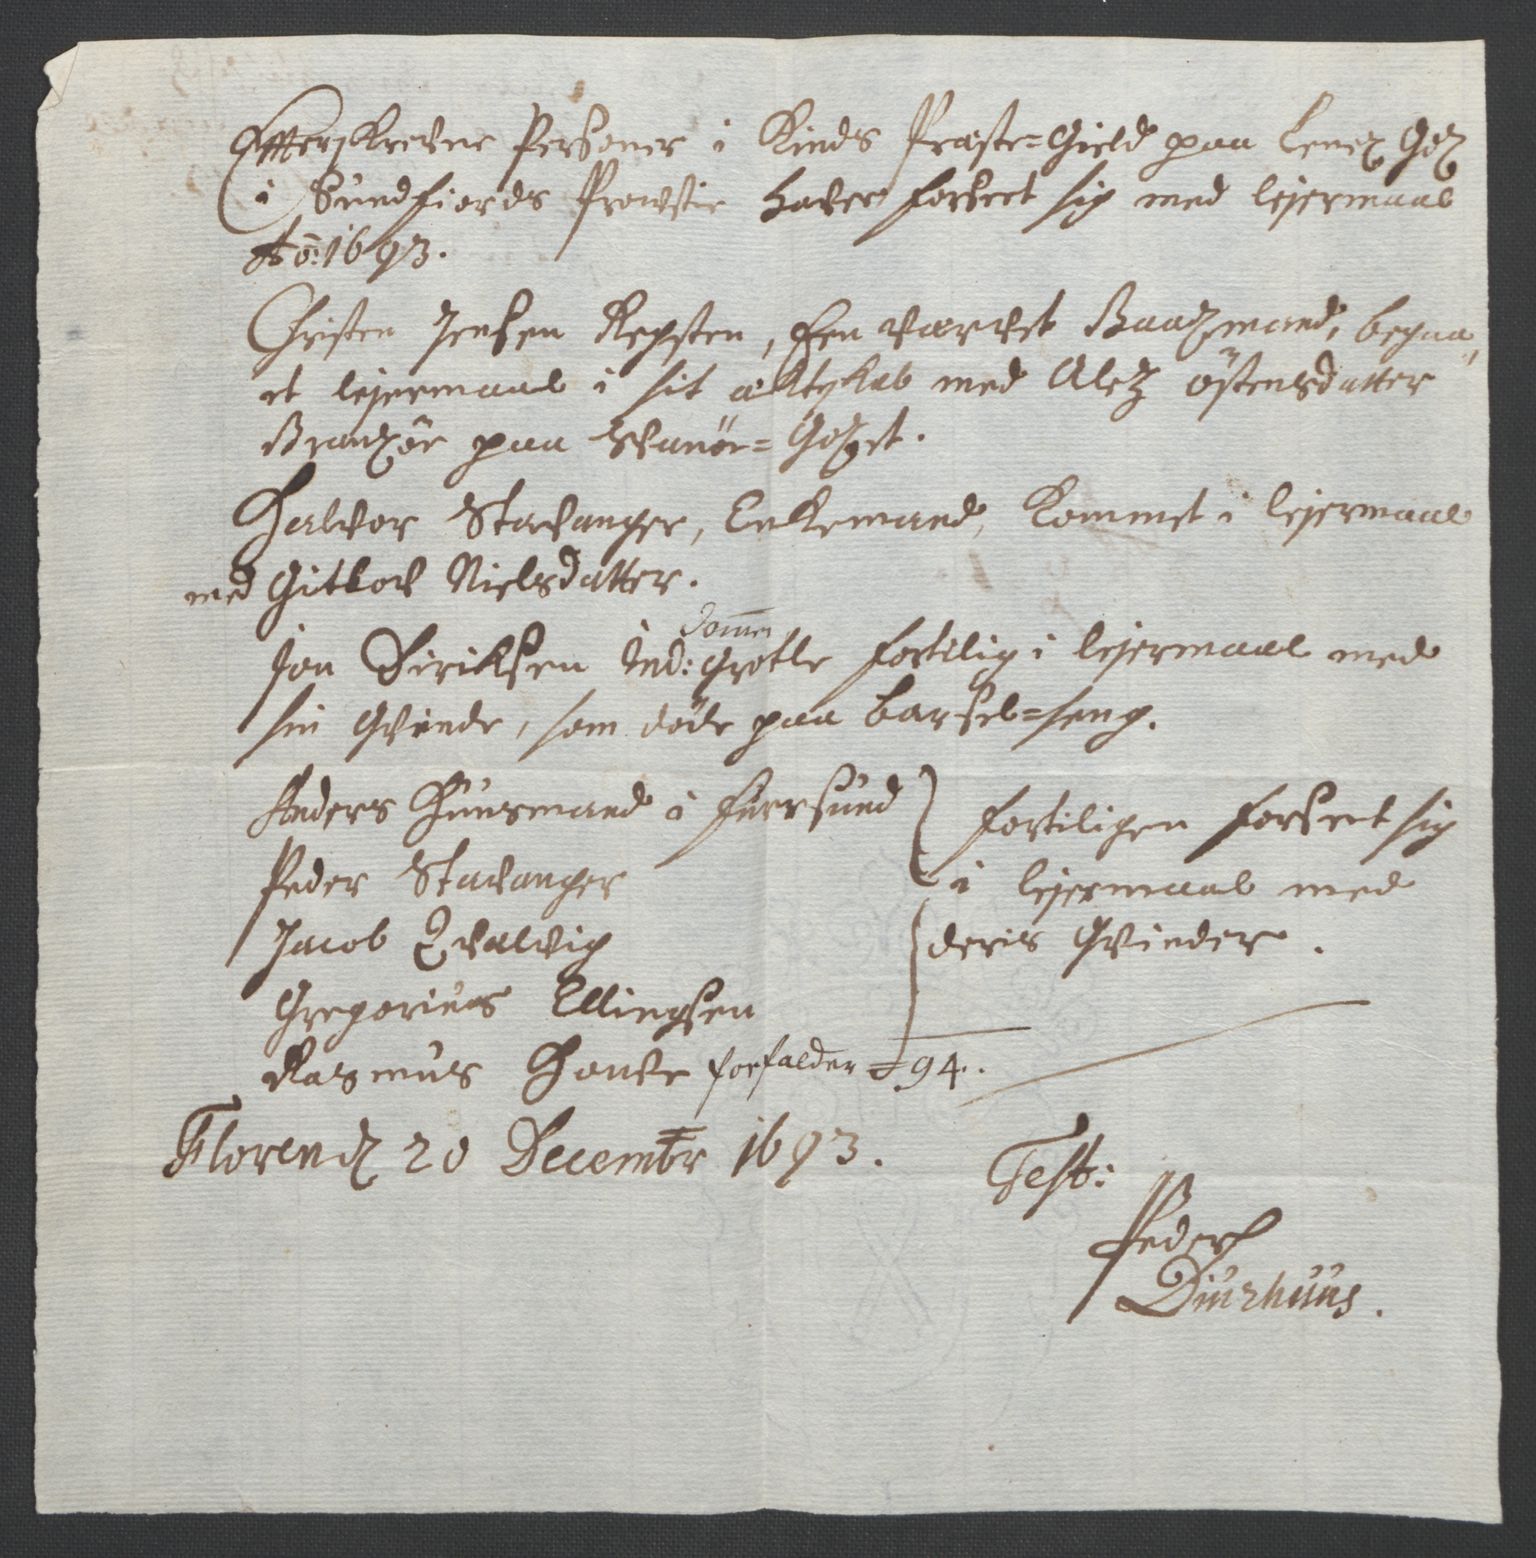 Effterskrefne Personer i Kinds Præste-Gield paa Lenez Gdz
i Sundfiords Provstie hafver forseet sig med lejermaal
Aō: 1693.
Christen Jensen Repsten, Een værvet Baadzmand, begaa„
et lejermaal i sit ækteskab med Alez östensdatter
Brandzöe paa Svanöe-Godzet.
Halvor Stavanger, Enkemand, kommet i lejermaal
med Gitlov Nielsdatter.
Jon Dirikssen Ind: Grotle fortilig i lejermaal med
sin Qvinde, som döde paa barsel-seng.
Anders Huusmand i Furrsund
Peder Stavanger
Jacob Qvalvig
Gregorius Ellingsen
Rasmus Hovde forfalder 94.
fortiligen forseet sig
i lejermaal med
deris Qvinder.
Florend 20 Decembr 1693.
Test:
Peder
Diurhuus.